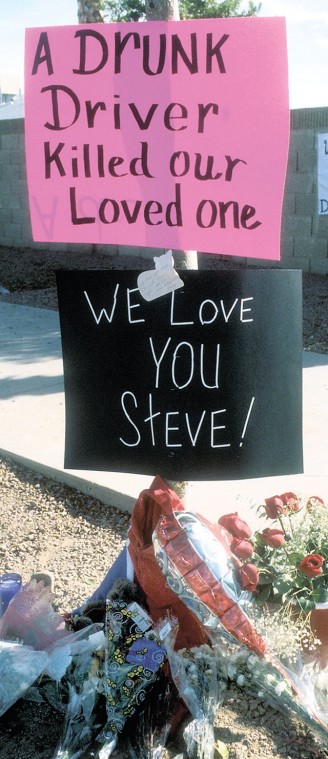 A DrUNK
Driver
Killed our
Loved one
WE LOVE
YOU
StEVE!